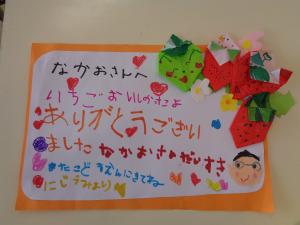 なかおさんへ
いちごおいしかたよ
ありがとうござい
ました なかおさんだいすき
またこどもえんにきてね
にじぐみより